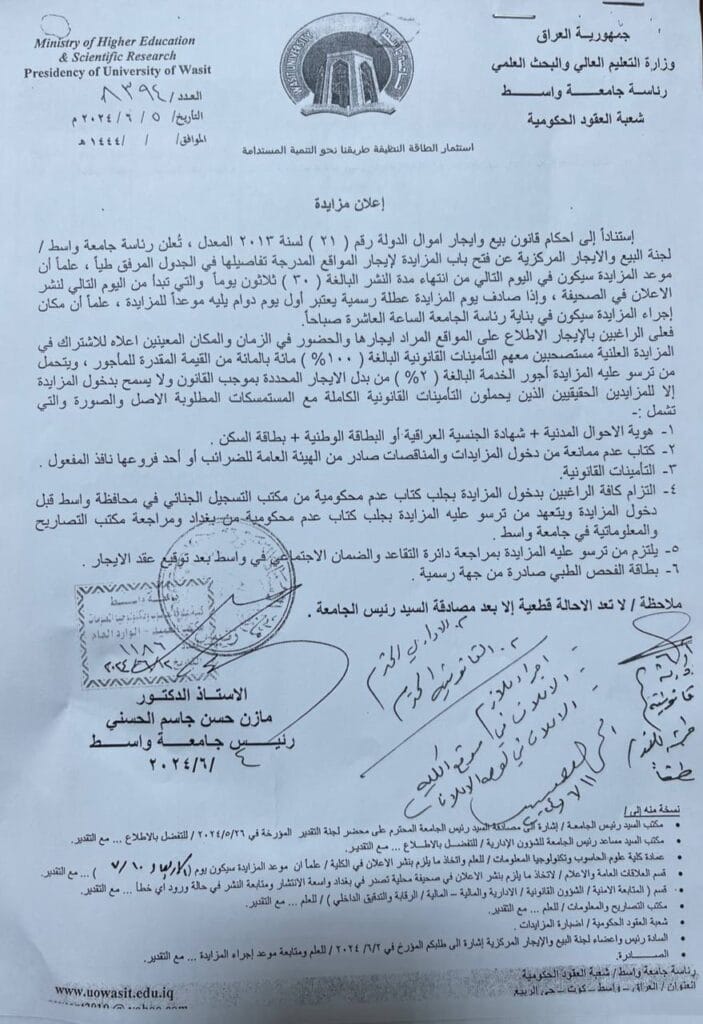 Ministry of Higher Education
& Scientific Research
Presidency of University of Wasit
العدد/ ٨٣٩٤
التاريخ/ ٥ / ٦ / ٢٠٢٤ م
الموافق/ / / ١٤٤٤ هـ
جمهورية العراق
وزارة التعليم العالي والبحث العلمي
رئاسة جامعة واسط
شعبة العقود الحكومية
استثمار الطاقة النظيفة طريقنا نحو التنمية المستدامة
إعلان مزايدة
إستناداً إلى احكام قانون بيع وايجار اموال الدولة رقم ( ٢١ ) لسنة ٢٠١٣ المعدل ، تُعلن رئاسة جامعة واسط /
لجنة البيع والايجار المركزية عن فتح باب المزايدة لإيجار المواقع المدرجة تفاصيلها في الجدول المرفق طياً ، علماً أن
موعد المزايدة سيكون في اليوم التالي من انتهاء مدة النشر البالغة ( ٣٠ ) ثلاثون يوماً والتي تبدأ من اليوم التالي لنشر
الاعلان في الصحيفة ، وإذا صادف يوم المزايدة عطلة رسمية يعتبر أول يوم دوام يليه موعداً للمزايدة ، علماً أن مكان
إجراء المزايدة سيكون في بناية رئاسة الجامعة الساعة العاشرة صباحاً.
فعلى الراغبين بالإيجار الاطلاع على المواقع المراد ايجارها والحضور في الزمان والمكان المعينين اعلاه للاشتراك في
المزايدة العلنية مستصحبين معهم التأمينات القانونية البالغة ( ١٠٠% ) مائة بالمائة من القيمة المقدرة للمأجور ، ويتحمل
من ترسو عليه المزايدة أجور الخدمة البالغة ( ٢% ) من بدل الايجار المحددة بموجب القانون ولا يسمح بدخول المزايدة
إلا للمزايدين الحقيقيين الذين يحملون التأمينات القانونية الكاملة مع المستمسكات المطلوبة الاصل والصورة والتي
تشمل :-
١- هوية الاحوال المدنية + شهادة الجنسية العراقية أو البطاقة الوطنية + بطاقة السكن .
٢- كتاب عدم ممانعة من دخول المزايدات والمناقصات صادر من الهيئة العامة للضرائب أو أحد فروعها نافذ المفعول .
٣- التأمينات القانونية.
٤- التزام كافة الراغبين بدخول المزايدة بجلب كتاب عدم محكومية من مكتب التسجيل الجنائي في محافظة واسط قبل
دخول المزايدة ويتعهد من ترسو عليه المزايدة بجلب كتاب عدم محكومية من بغداد ومراجعة مكتب التصاريح
والمعلوماتية في جامعة واسط .
٥- يلتزم من ترسو عليه المزايدة بمراجعة دائرة التقاعد والضمان الاجتماعي في واسط بعد توقيع عقد الايجار .
٦- بطاقة الفحص الطبي صادرة من جهة رسمية .
ملاحظة / لا تعد الاحالة قطعية إلا بعد مصادقة السيد رئيس الجامعة .
الوارد العام
١١٨٦
الاستاذ الدكتور
مازن حسن جاسم الحسني
رئيس جامعة واسط
٤ /٦/ ٢٠٢٤
نسخة منه إلى /
مكتب السيد رئيس الجامعة / إشارة الى مصادقة السيد رئيس الجامعة المحترم على محضر لجنة التقدير المؤرخة في ٢٠٢٤/٥/٢٦ / للتفضل بالاطلاع ... مع التقدير.
مكتب السيد مساعد رئيس الجامعة للشؤون الإدارية / للتفضل بالاطلاع ... مع التقدير.
عمادة كلية علوم الحاسوب وتكنولوجيا المعلومات / للعلم واتخاذ ما يلزم بنشر الاعلان في الكلية / علماً ان موعد المزايدة سيكون يوم ( الأربعاء ٧/١٠ ) ... مع التقدير.
قسم العلاقات العامة والاعلام / لاتخاذ ما يلزم بنشر الاعلان في صحيفة محلية تصدر في بغداد واسعة الانتشار ومتابعة النشر في حالة ورود أي خطأ ... مع التقدير.
قسم ( المتابعة الامنية / الشؤون القانونية / الادارية والمالية – المالية / الرقابة والتدقيق الداخلي ) / للعلم ... مع التقدير.
مكتب التصاريح والمعلومات / للعلم ... مع التقدير.
شعبة العقود الحكومية / اضبارة المزايدات .
السادة رئيس واعضاء لجنة البيع والإيجار المركزية إشارة الى طلبكم المؤرخ في ٢٠٢٤/٦/٢ / للعلم ومتابعة موعد إجراء المزايدة ... مع التقدير.
الصادرة.
رئاسة جامعة واسط / شعبة العقود الحكومية
العنوان / العراق – واسط – كوت – حي الربيع
www.uowasit.edu.iq